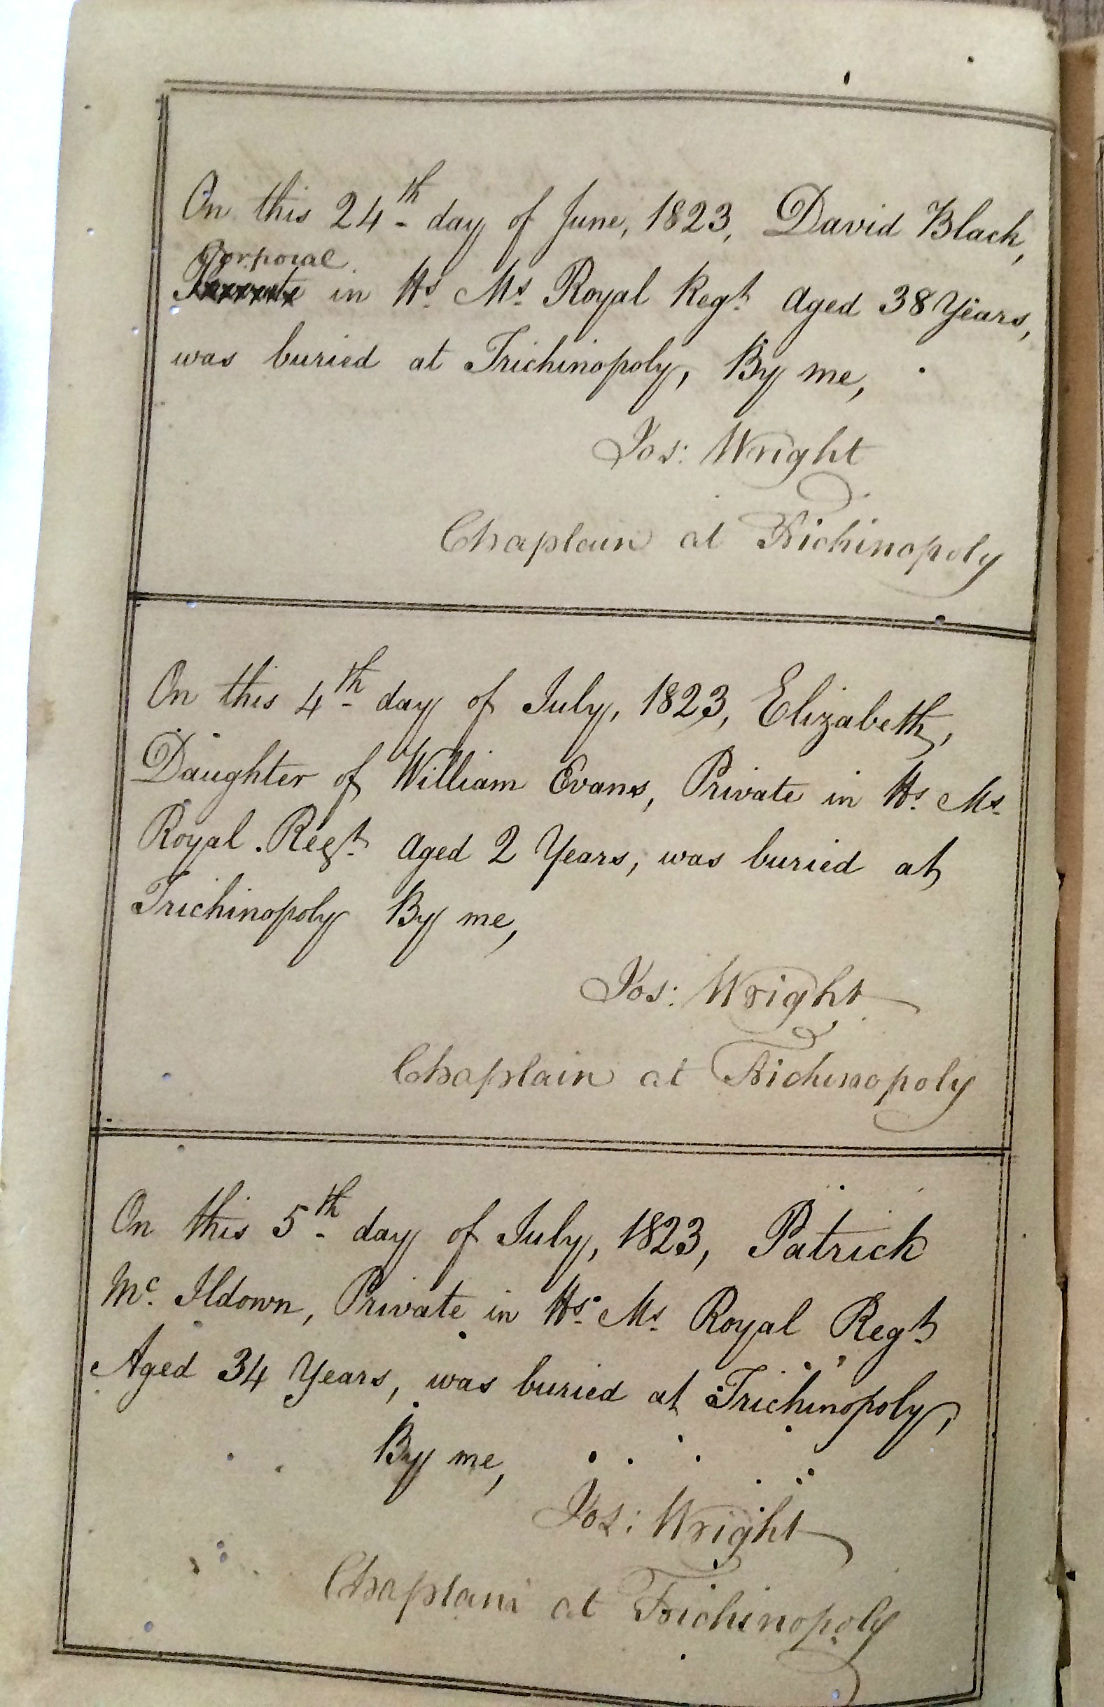 On this 24th day of June, 1823, David Black,
Corporal
Private in Hs Ms Royal Regt Aged 38 Years,
was buried at Trichinopoly, By me,
Jos: Wright
Chaplain at Trichinopoly
On this 4th day of July, 1823, Elizabeth,
Daughter of William Evans, Private in Hs. Ms.
Royal Regt. Aged 2 Years, was buried at
Trichinopoly By me,
Jos: Wright
Chaplain at Trichinopoly
On this 5th day of July, 1823, Patrick
Mc. Ildown, Private in Hs. Ms. Royal Regt
Aged 34 Years, was buried at Trichinopoly,
By me,
Jos: Wright
Chaplain at Trichinopoly